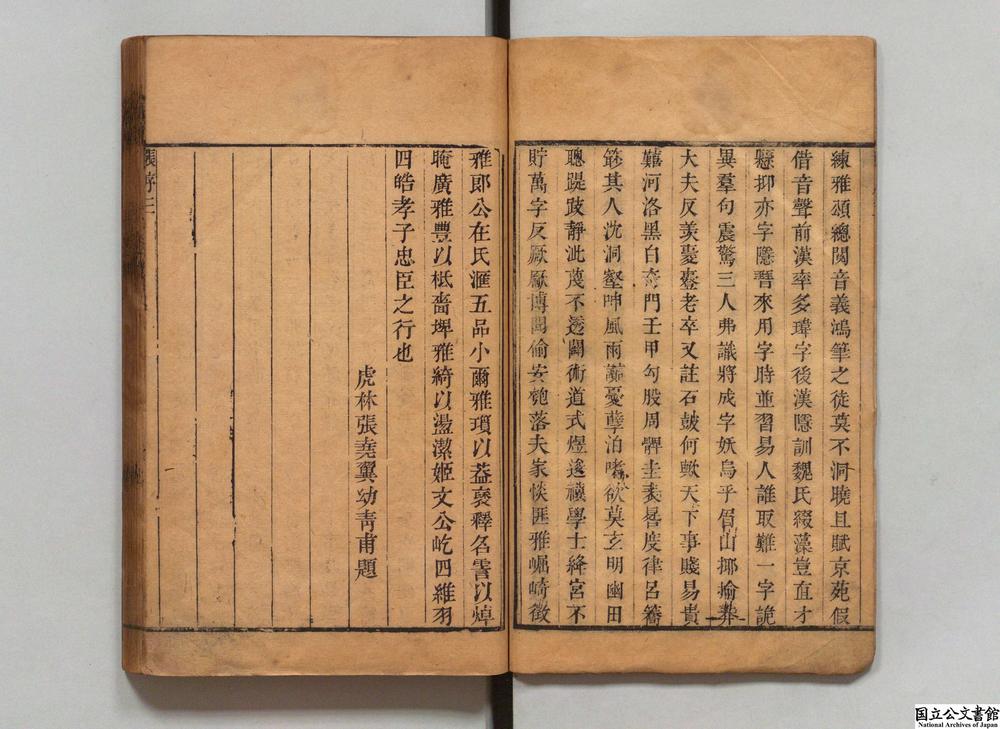 練雅頌總閱音義鴻筆之徒莫不洞曉且賦京苑假
借音聲前漢率多瑋字後漢隱訓魏氏綴藻豈直才
懸抑亦字隱晉來用字時並習易人誰取難一字詭
異羣句震驚三人弗識將成字妖烏乎眉山揶揄莽
大夫反羨憂老卒又註石皷何歟天下事賤易貴
囏河洛黑白奇門壬甲勾股周髀圭表晷度律呂籥
其人沈洞壑呻風雨蕲憂孽泊啫欲莫玄明幽田
聰踶跂靜泚蔑不透闢術道式煜遙禩學士絳宮不
貯萬字反厭厭博聞偷安匏落夫家惔匪雅崛崎徵
雅郎公在氏滙五品小爾雅瑣以葢褎釋名訔以焯
晻廣雅豐以柢嗇埤雅綺以盪潔姬文公屹四維羽
四皓孝子忠臣之行也
虎林張堯翼幼青甫題
張序三
国立公文書館
National Archives of Japan